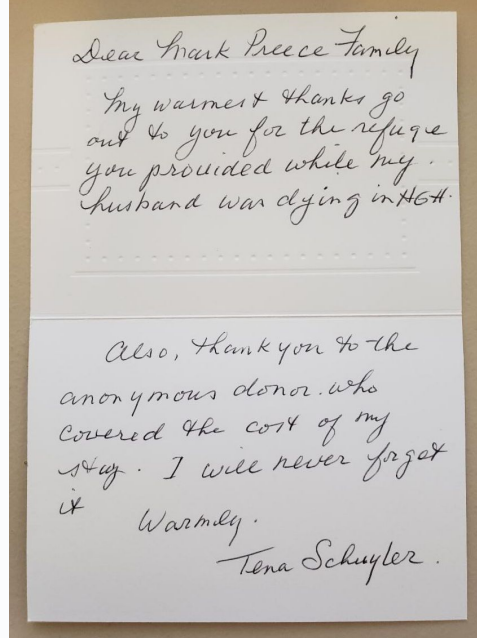 Dear Mark Preece Family
My warmest thanks go
out to you for the refuge
you provided while my
husband was dying in HGH.
Also, thank you to the
anonymous donor. who
covered the cost of my
stay. I will never forget
it
Warmly.
Tena Schuyler.